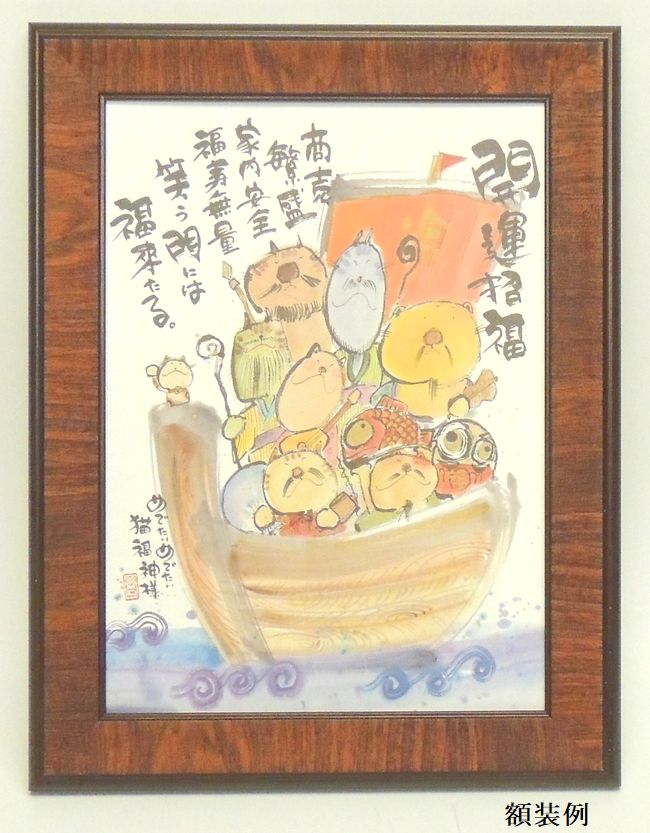 開運招福
商売
繁盛
家内安全
福寿無量
笑う門には
福来たる。
めでたいめでたい
猫福神様
額装例